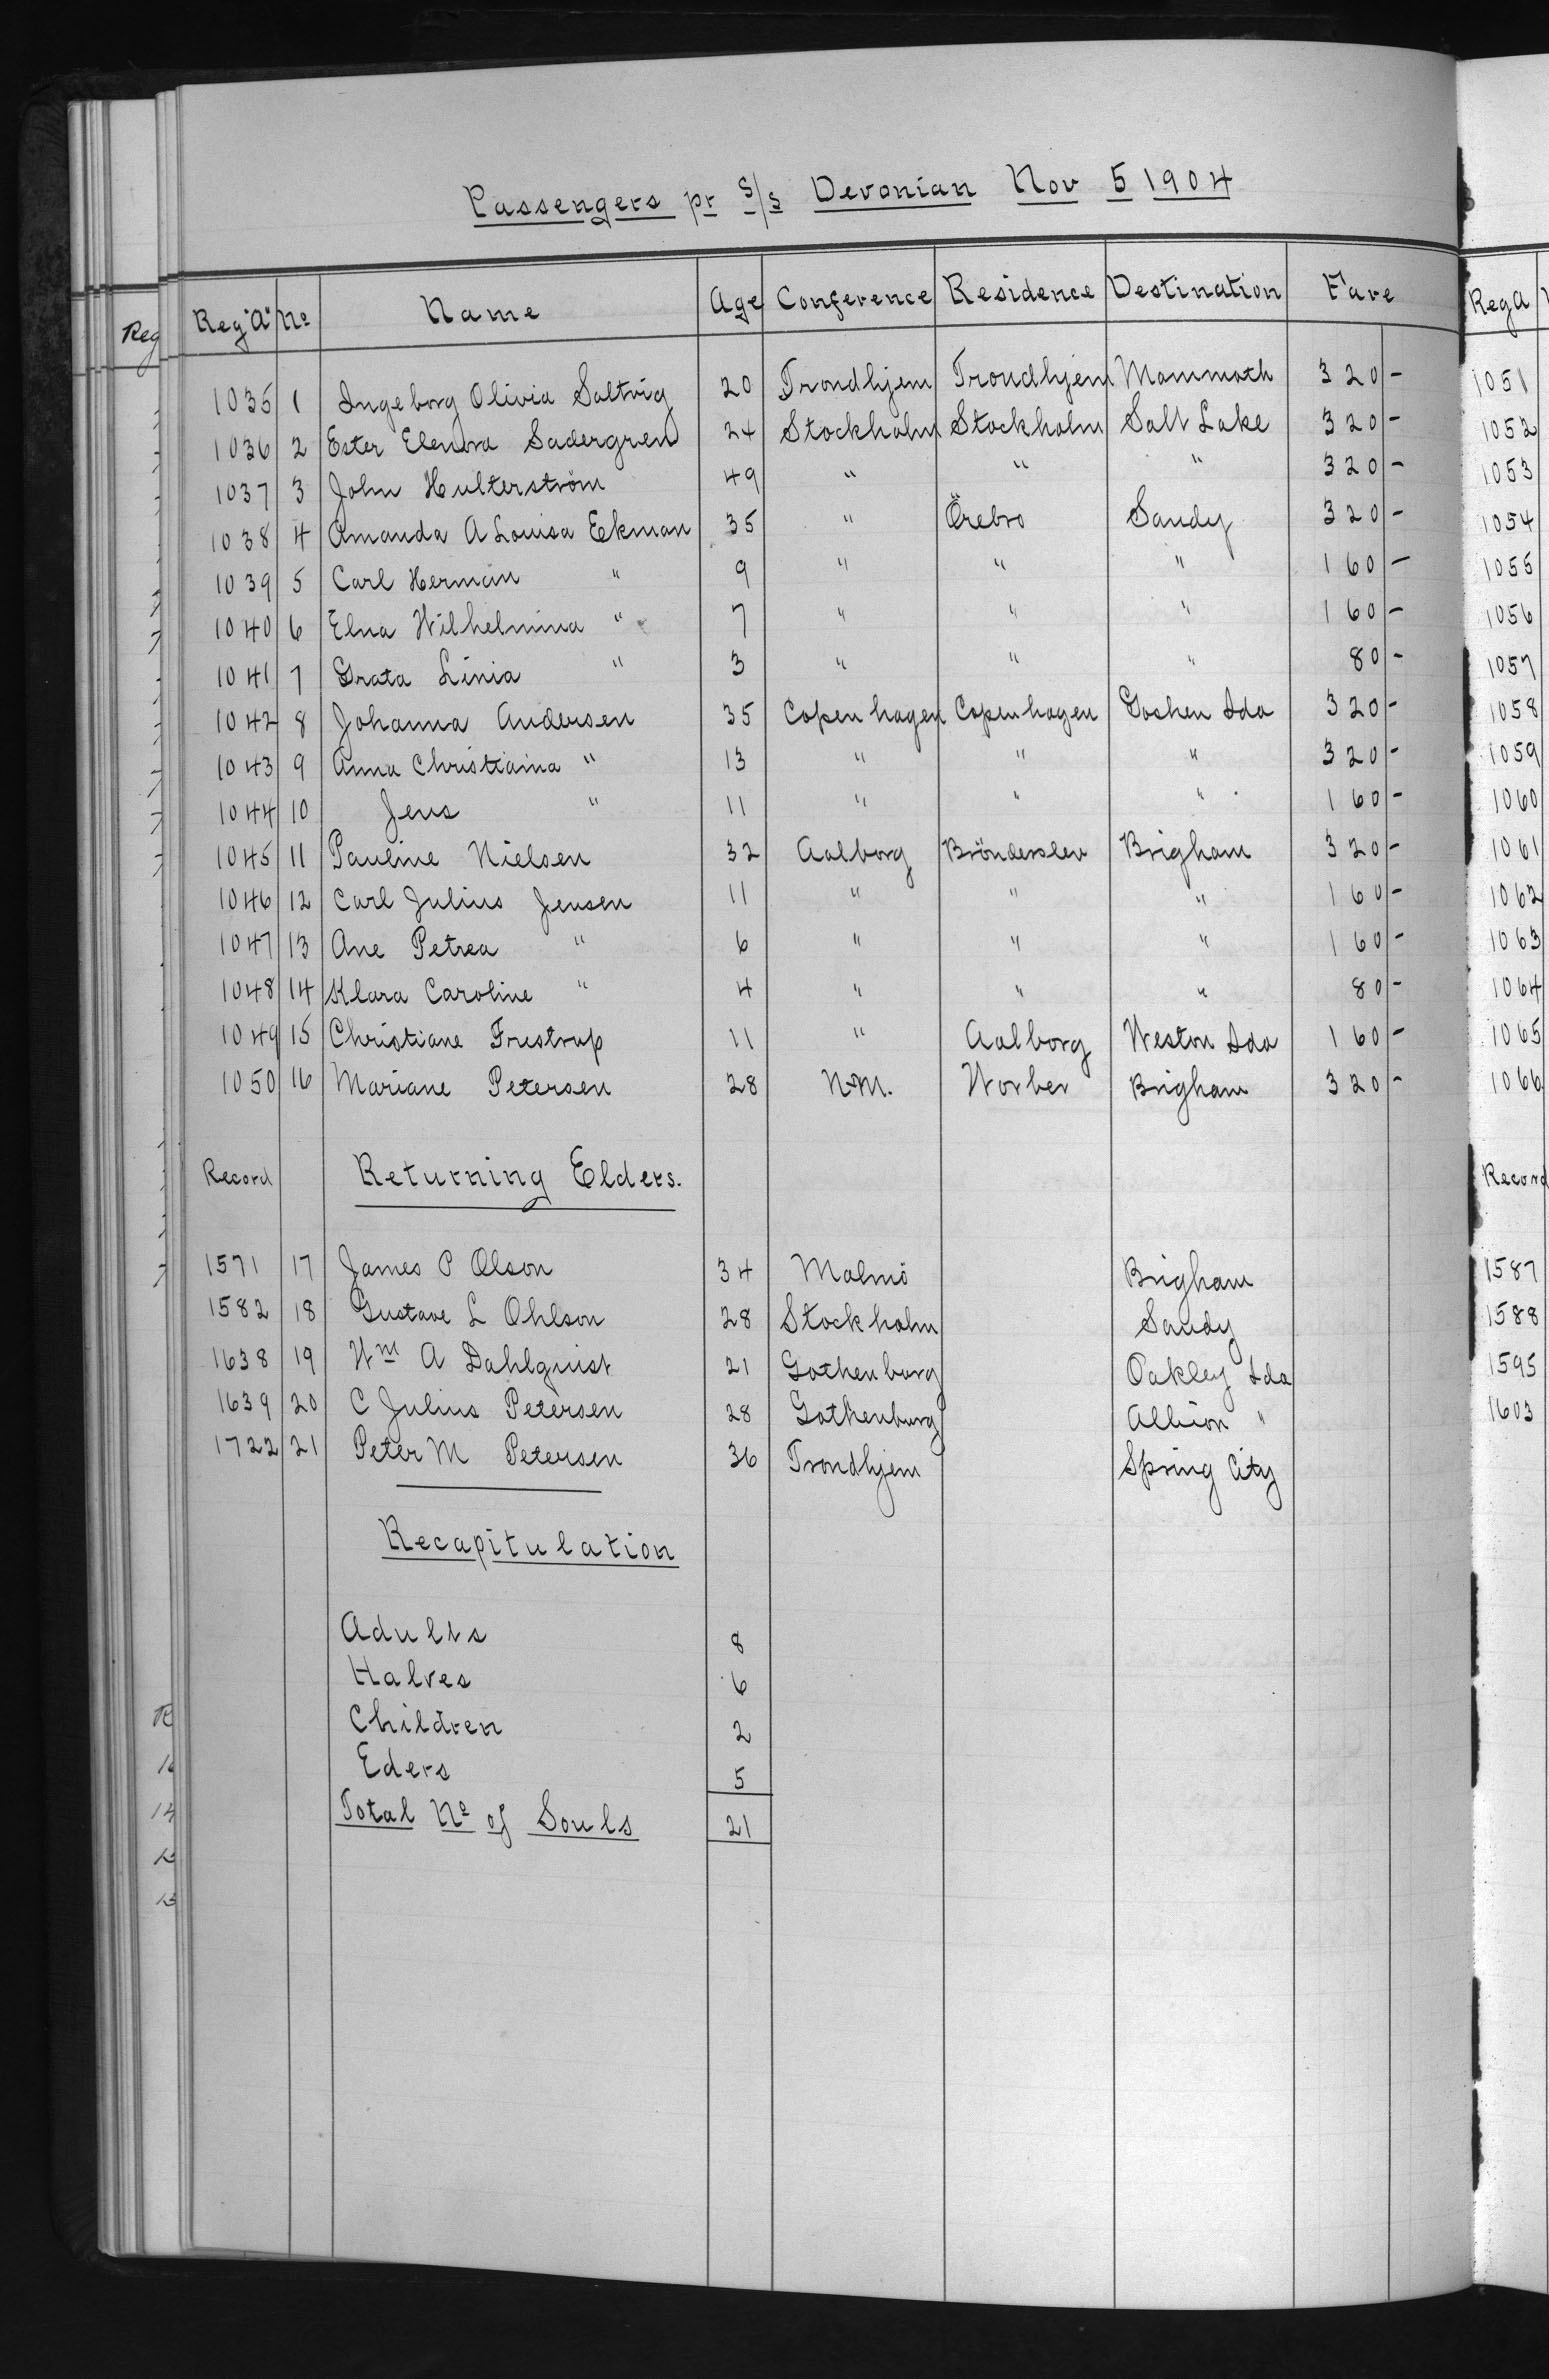 Passengers pr S/s Devonian Nov 5 1904
Reg "A" No Name Age Conference Residence Destination Fare
1035 1 Ingeborg Olivia Saltvig 20 Trondhjem Trondhjem Mammoth 320 -
1036 2 Ester Elenora Sadergren 24 Stockholm Stockholm Salt Lake 320 -
1037 3 John Hulterström 49 " " " 320 -
1038 4 Amanda A Louisa Ekman 35 " Örebro Sandy 320 -
1039 5 Carl Herman " 9 " " " 160 -
1040 6 Elna Wilhelmina " 7 " " " 160 -
1041 7 Grata Linia " 3 " " " 80 -
1042 8 Johanna Andersen 35 Copenhagen Copenhagen Goshen Ida 320 -
1043 9 Anna Christiaina " 13 " " " 320 -
1044 10 Jens " 11 " " " 160 -
1045 11 Pauline Nielsen 32 Aalborg Brönderslev Brigham 320 -
1046 12 Carl Julius Jensen 11 " " " 160 -
1047 13 Ane Petrea " 6 " " " 160 -
1048 14 Klara Caroline " 4 " " " 80 -
1049 15 Christiane Frestrup 11 " Aalborg Weston Ida 160 -
1050 16 Mariane Petersen 28 N.M. Worber Brigham 320 -
Record Returning Elders.
1571 17 James P Olson 34 Malmö Brigham
1582 18 Gustave L Ohlson 28 Stockholm Sandy
1638 19 Wm A Dahlquist 21 Gothenburg Oakley Ida
1639 20 C Julius Petersen 28 Gothenburg Albion "
1722 21 Peter M Petersen 36 Trondhjem Spring City
Recapitulation
Adults 8
Halves 6
Children 2
Eders 5
Total No of Souls 21
Reg
Reg A
1051
1052
1053
1054
1055
1056
1057
1058
1059
1060
1061
1062
1063
1064
1065
1066
Record
1587
1588
1595
1603